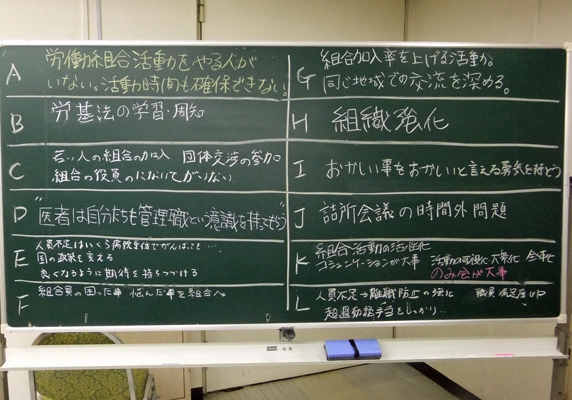 A 労働組合活動をやる人が
いない。活動時間も確保できない!
B 労基法の学習・周知
C 若い人の組合の加入 団体交渉の参加
組合の役員のにないてがいない
D "医者は自分たちも管理職という意識を持ってもらう"
E 人員不足はいくら病院単位でがんばっても…
国の政策を変える
良くなるように期待を持ちつづける
F 組合員の困った事 悩んだ事を組合へ
G 組合加入率を上げる活動。
同じ地域での交流を深める。
H 組織強化
I おかしい事をおかしいと言える勇気を持とう
J 詰所会議の時間外問題
K 組合活動の活性化
コミュニケーションが大事 活動の可視化 大衆化
のみ会が大事
L 人員不足→離職防止の強化 職員満足度UP
超過勤務手当をしっかり…